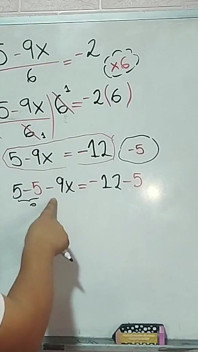 5 - 9x / 6 = -2 ×6
(5 - 9x / 6) 6 1 = -2(6)
5 - 9x = -12 -5
5 - 5 - 9x = -12 - 5
0